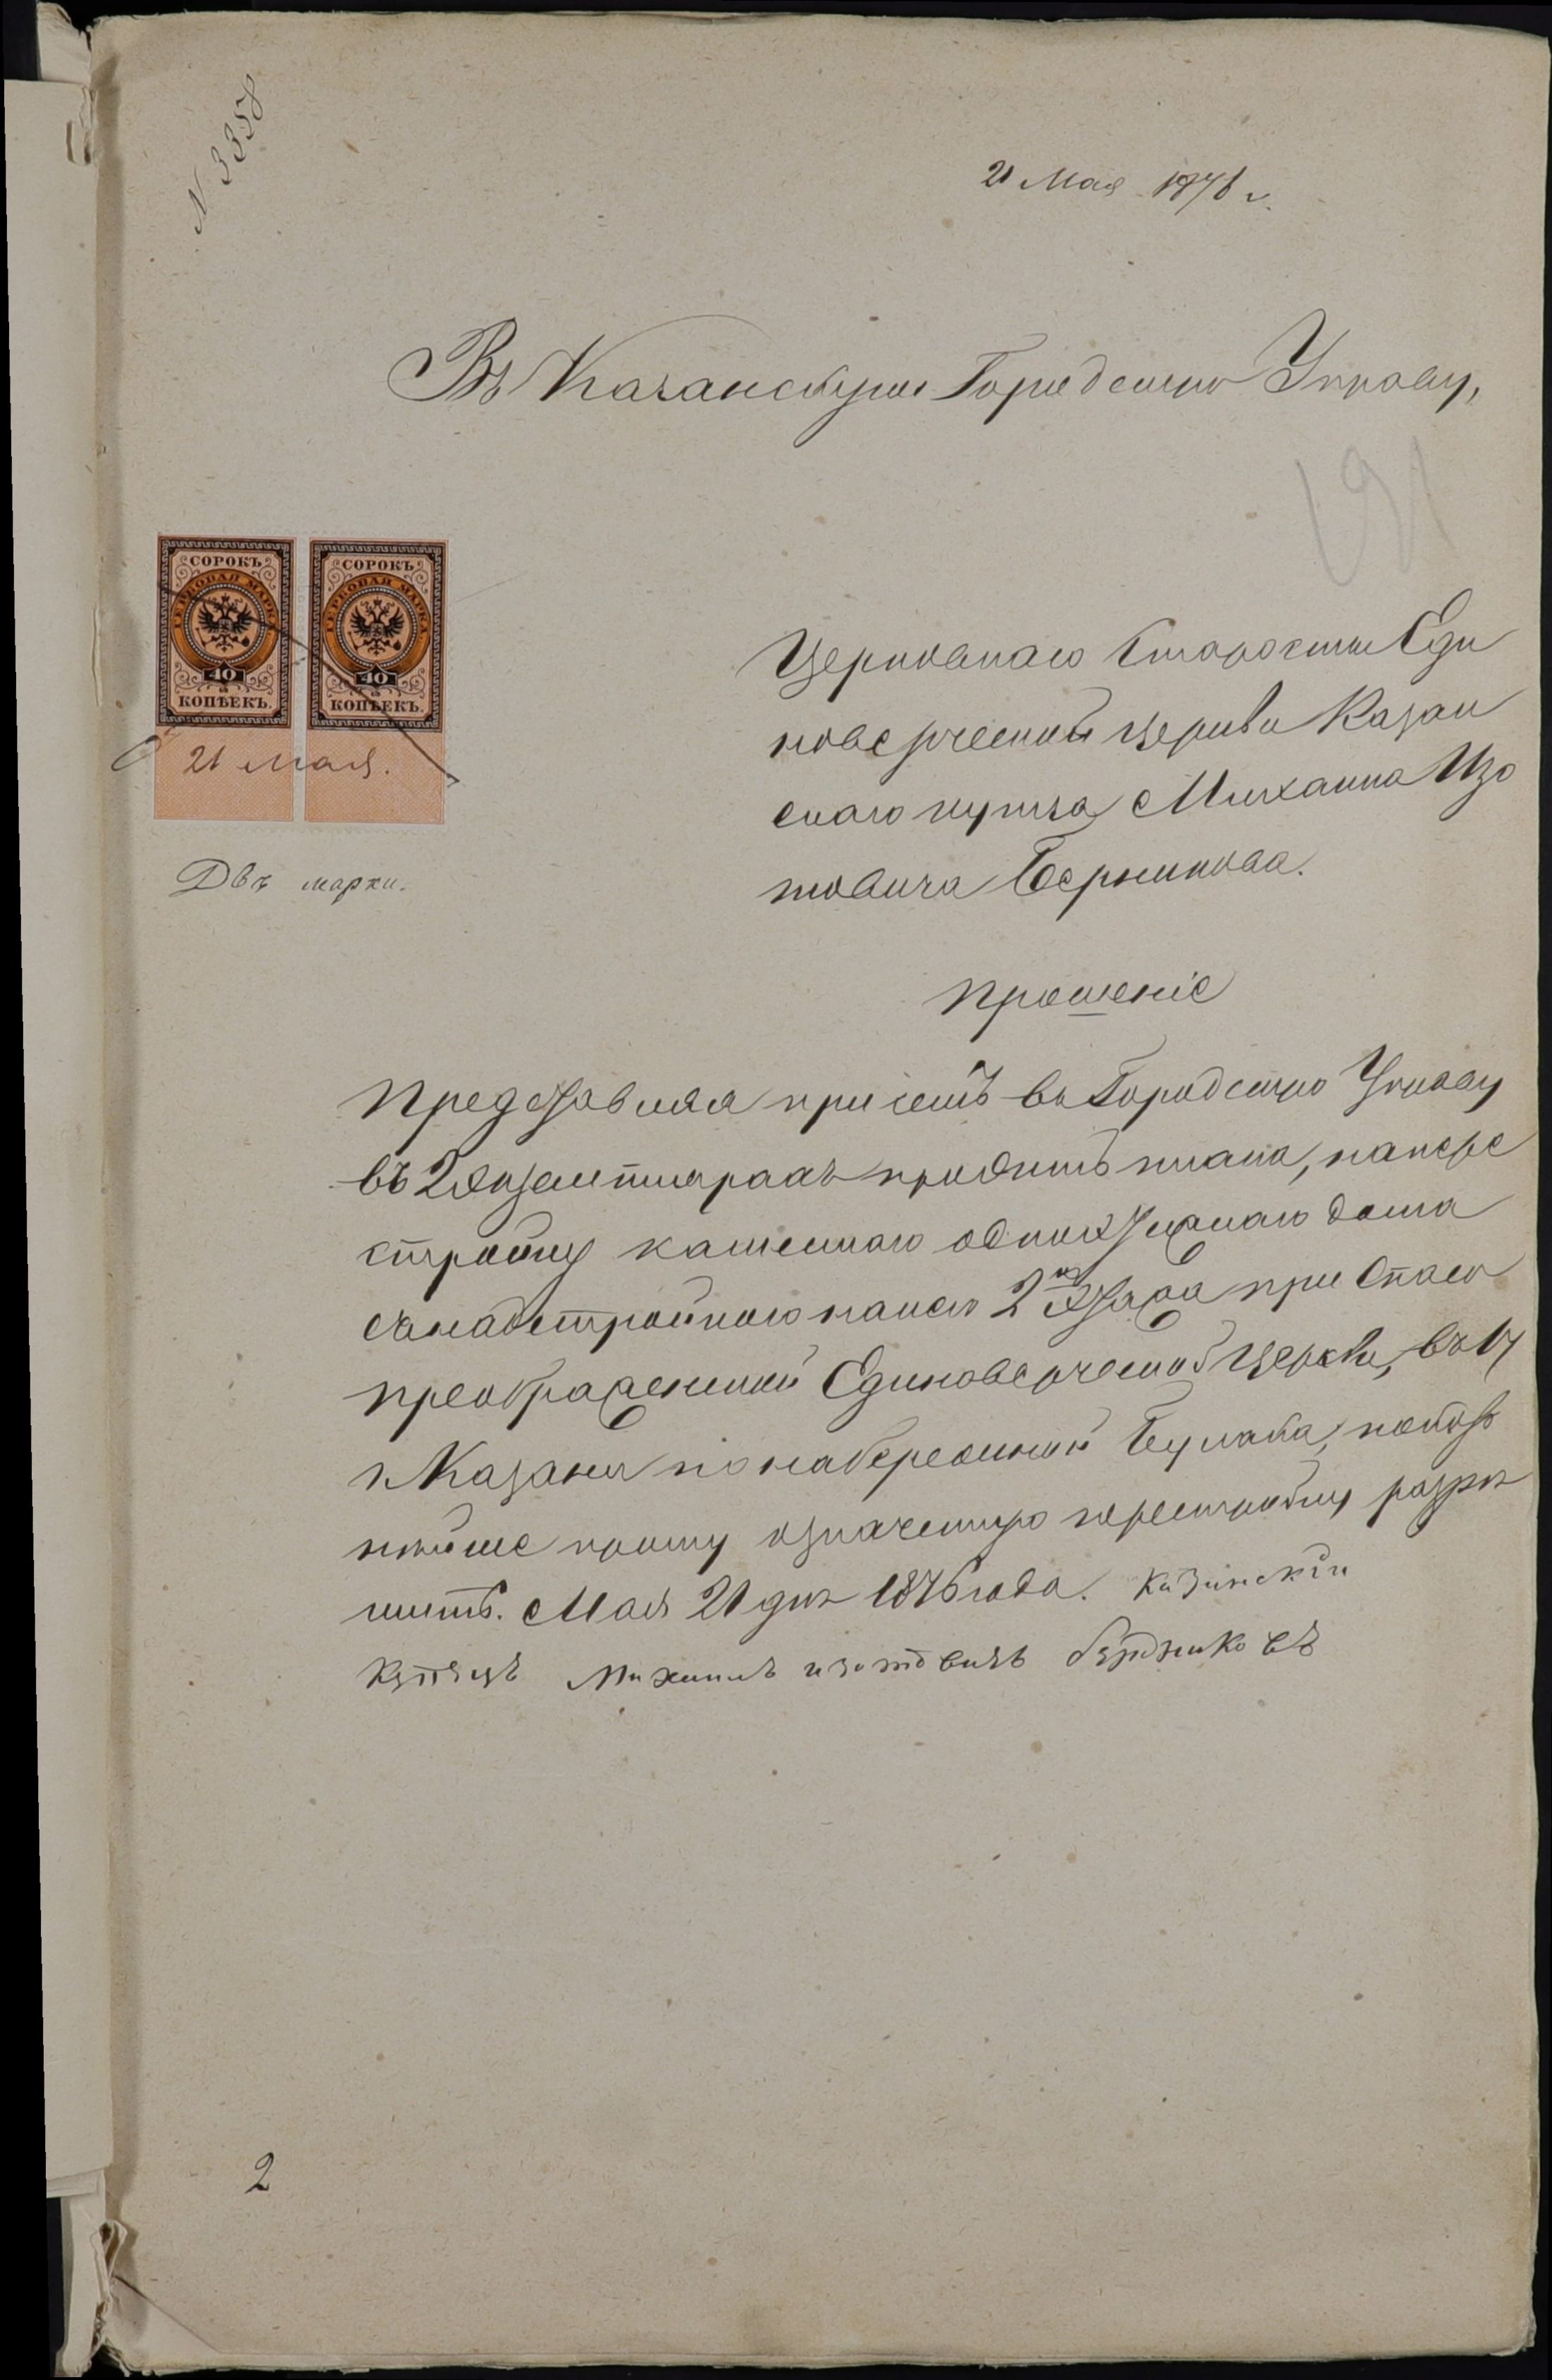 N 3358
21 Мая 1876 г.
Въ Казанскую Городскую Управу,
191
СОРОКЪ
ГЕРБОВАЯ МАРКА
40
КОПѢЕКЪ.
СОРОКЪ
ГЕРБОВАЯ МАРКА
40
КОПѢЕКЪ.
21 Мая.
Двѣ марки.
Церковнаго Старосты Еди
новерческой церкви Казан
скаго купца Михаила Изо
товича
Прошеніе
Представляя при семъ въ Городскую Управу
въ 2 экземплярахъ проэктъ плана, на пере
стройку каменнаго одноэтажнаго дома
съ надстройкою на немъ 2го этажа при Спасо
преображенской Единоверческой Церкви, въ
г. Казани по набережной Булака, покор
нейше прошу означенную перестройку разре
шить. Мая 21 дня 1876 года. Казанскій
Купецъ Михаилъ изотовичъ
2